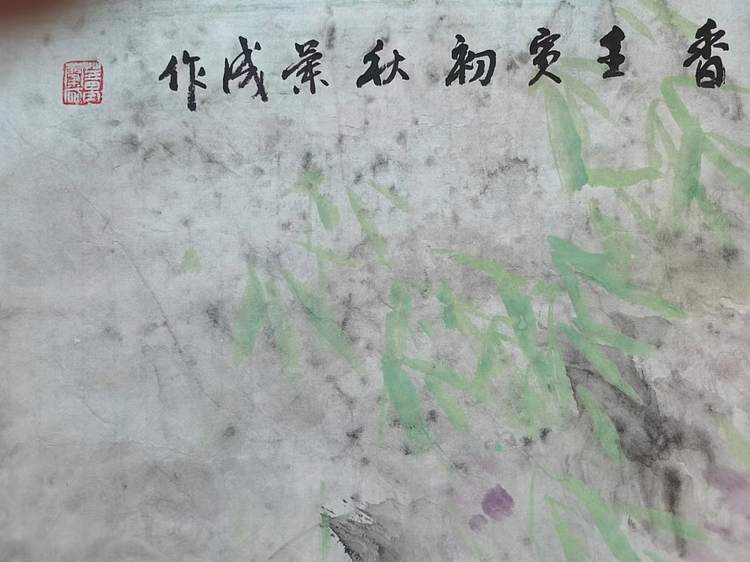 香壬寅初秋成作